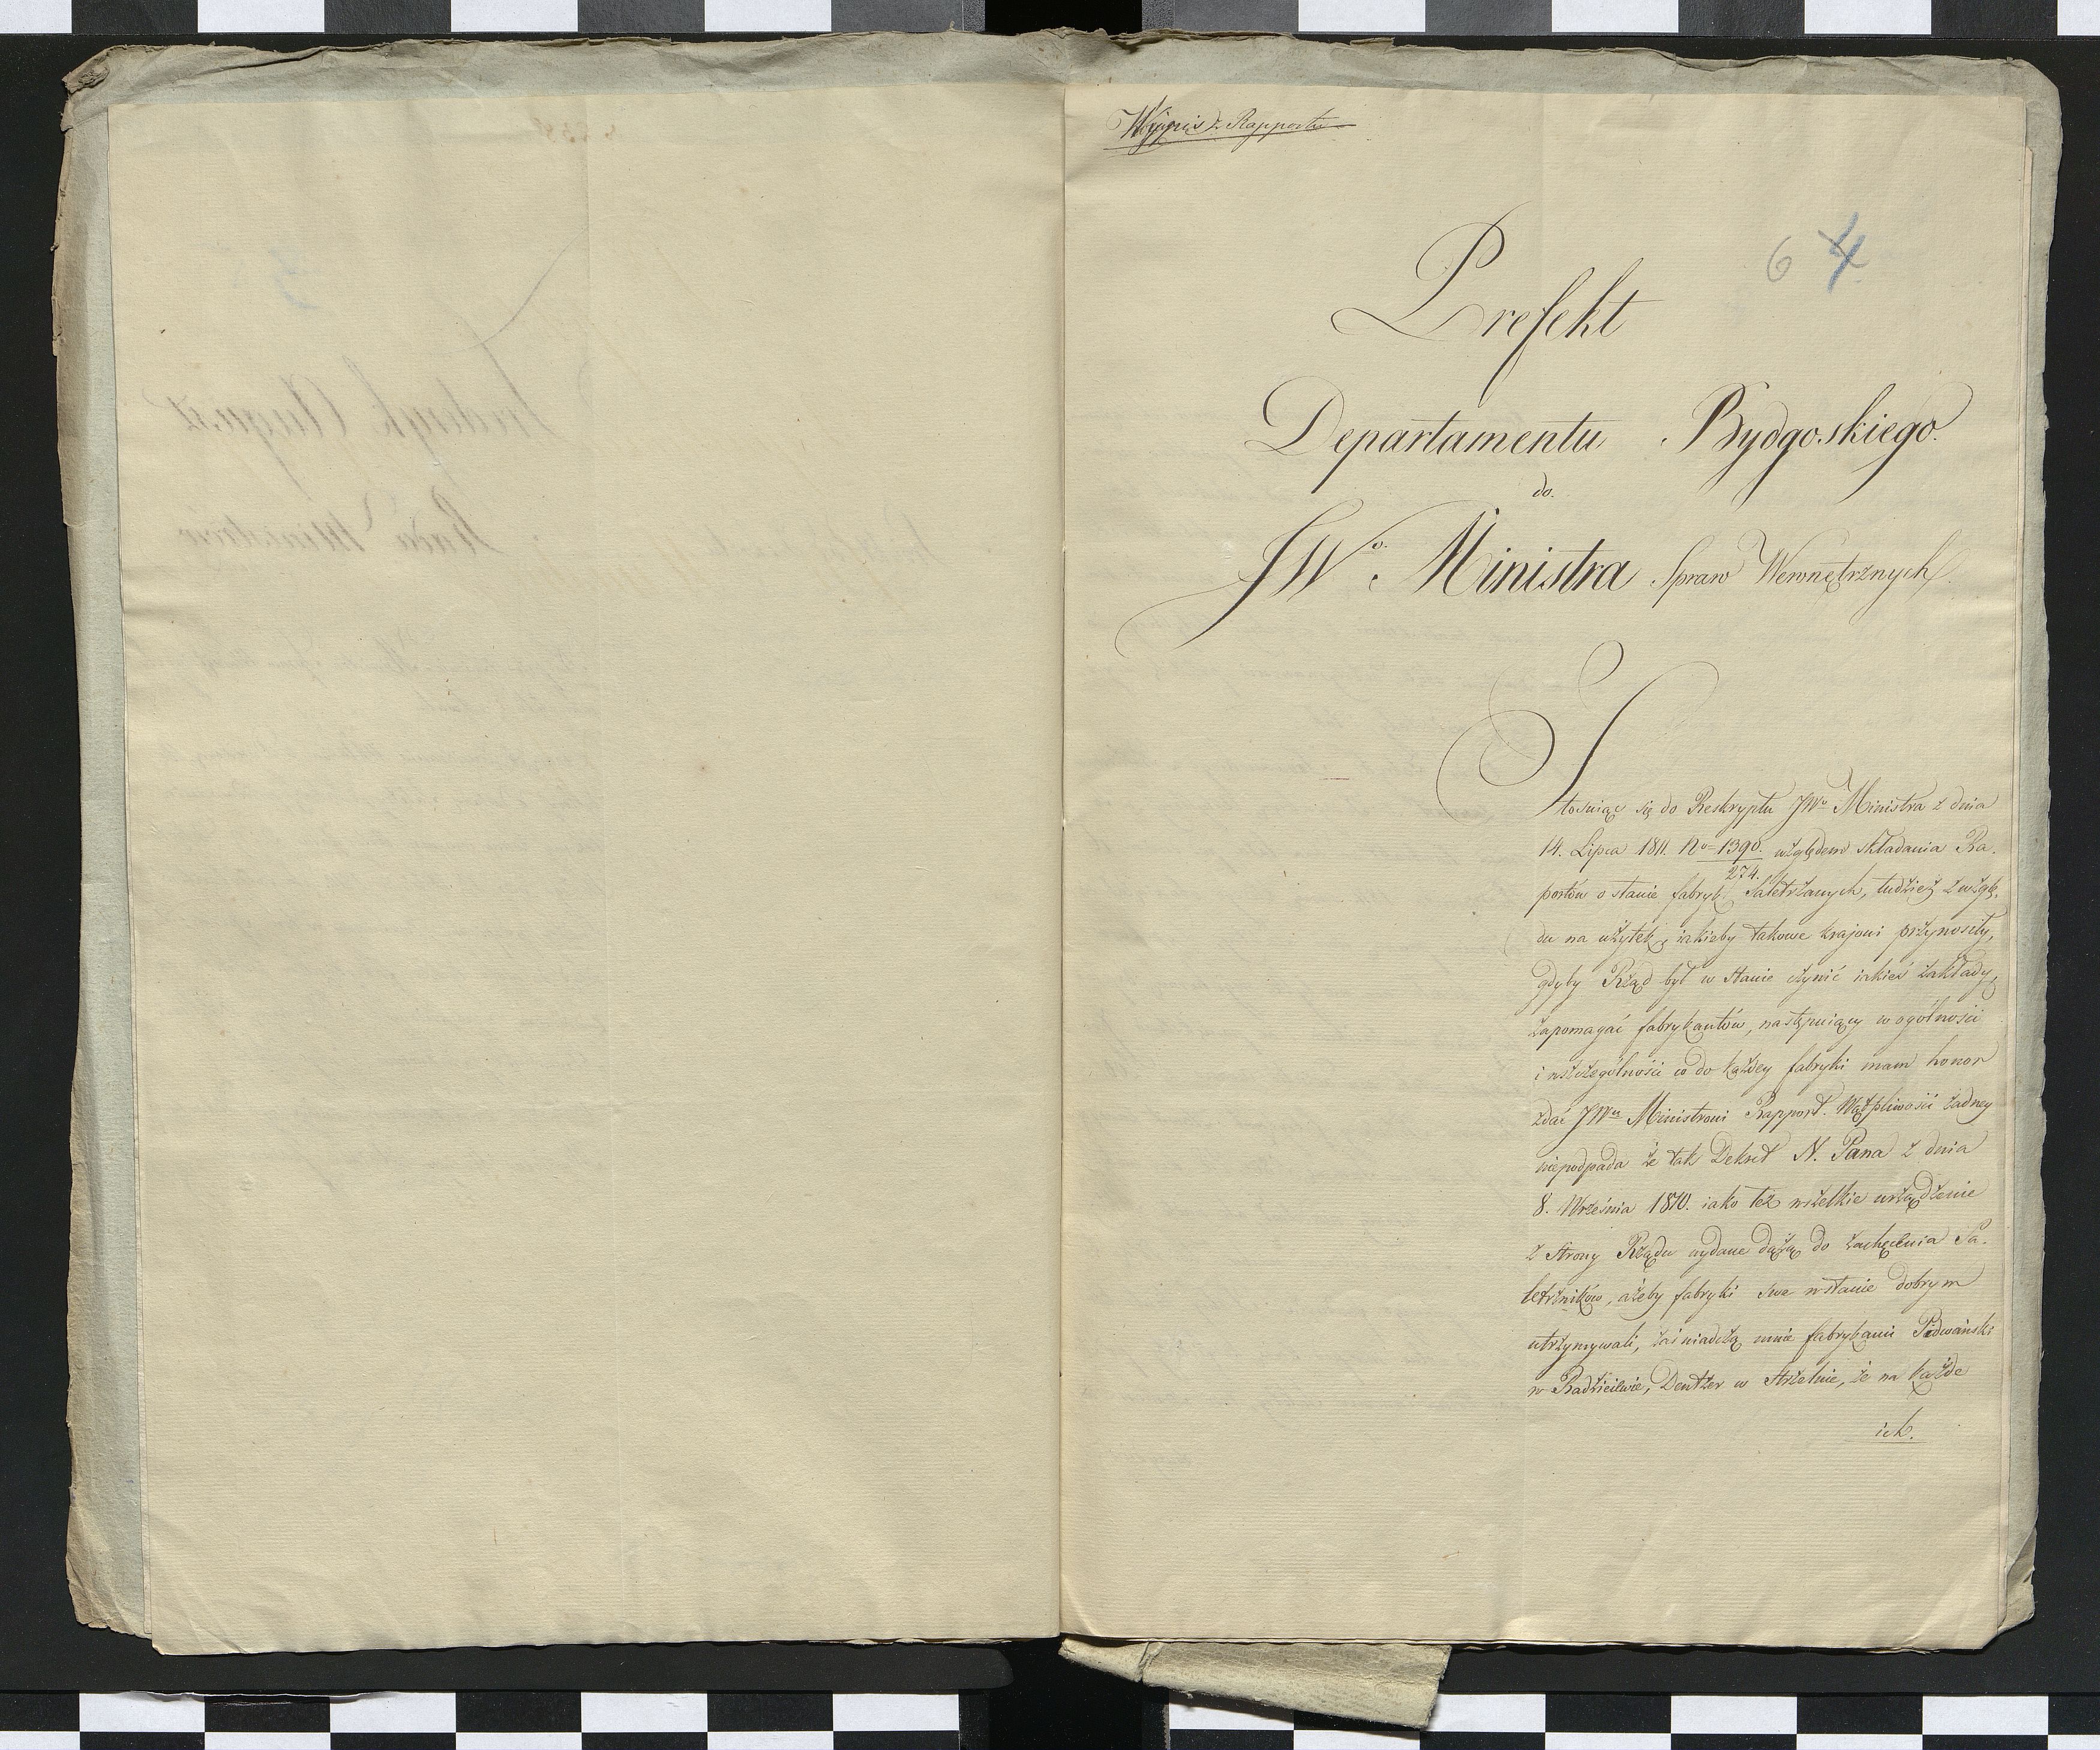 Wypis z Rapportu
6 4
Prefekt
Departamentu Bydgoskiego.
do.
JWo. Ministra Spraw Wewnętrznych.
Stosuiąc się do Reskryptu JWo Ministra z dnia
14. Lipca 1811. No 1390./274. względem składania Ra-
portów o stanie fabryk Saletrzanych, tudzież z wzglę-
du na użytek, iakieby takowe krajowi przynosiły,
gdyby Rząd był w stanie czynić iakieś zakłady,
zapomagać fabrykantów, następuiący w ogólności
i w szczególności co do każdey fabryki mam honor
zdać JWu Ministrowi Rapport. Wątpliwości żadney
niepodpada że tak Dekret N. Pana z dnia
8. Września 1810. iako też wszelkie urządzenie
z Strony Rządu wydane dążą do zachęcenia Sa-
letrzników, ażeby fabryki swe w stanie dobrym
utrzymywali, zaświadczą mnie fabrykanci
w Radzieiewie, Dentzer w Strzelnie, że na każde
ich.
Fryderyk August
Rada Ministrów
3